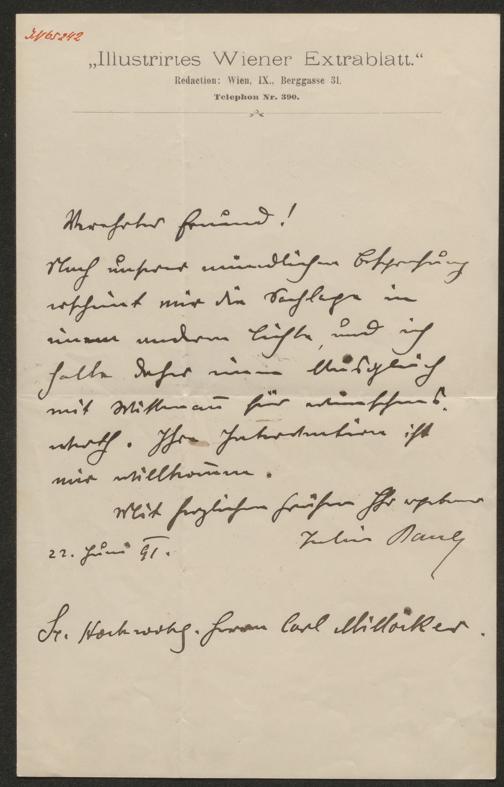 I.N. 65242
„Illustrirtes Wiener Extrablatt.“
Redaction: Wien, IX., Berggasse 31.
Telephon Nr. 390.
Verehrter Freund!
Nach unserer mündlichen Besprechung
erscheint mir die Sachlage in
einem anderen Lichte, und ich
halte daher einen Ausgleich
mit Wittmann für wünschens-
werth. Ihre Intervention ist
mir willkommen.
Mit herzlichen Grüßen Ihr ergebener
22. Juni 91. Julius Bauer
Sr. Hochwohlg. Herrn Carl Millöcker.